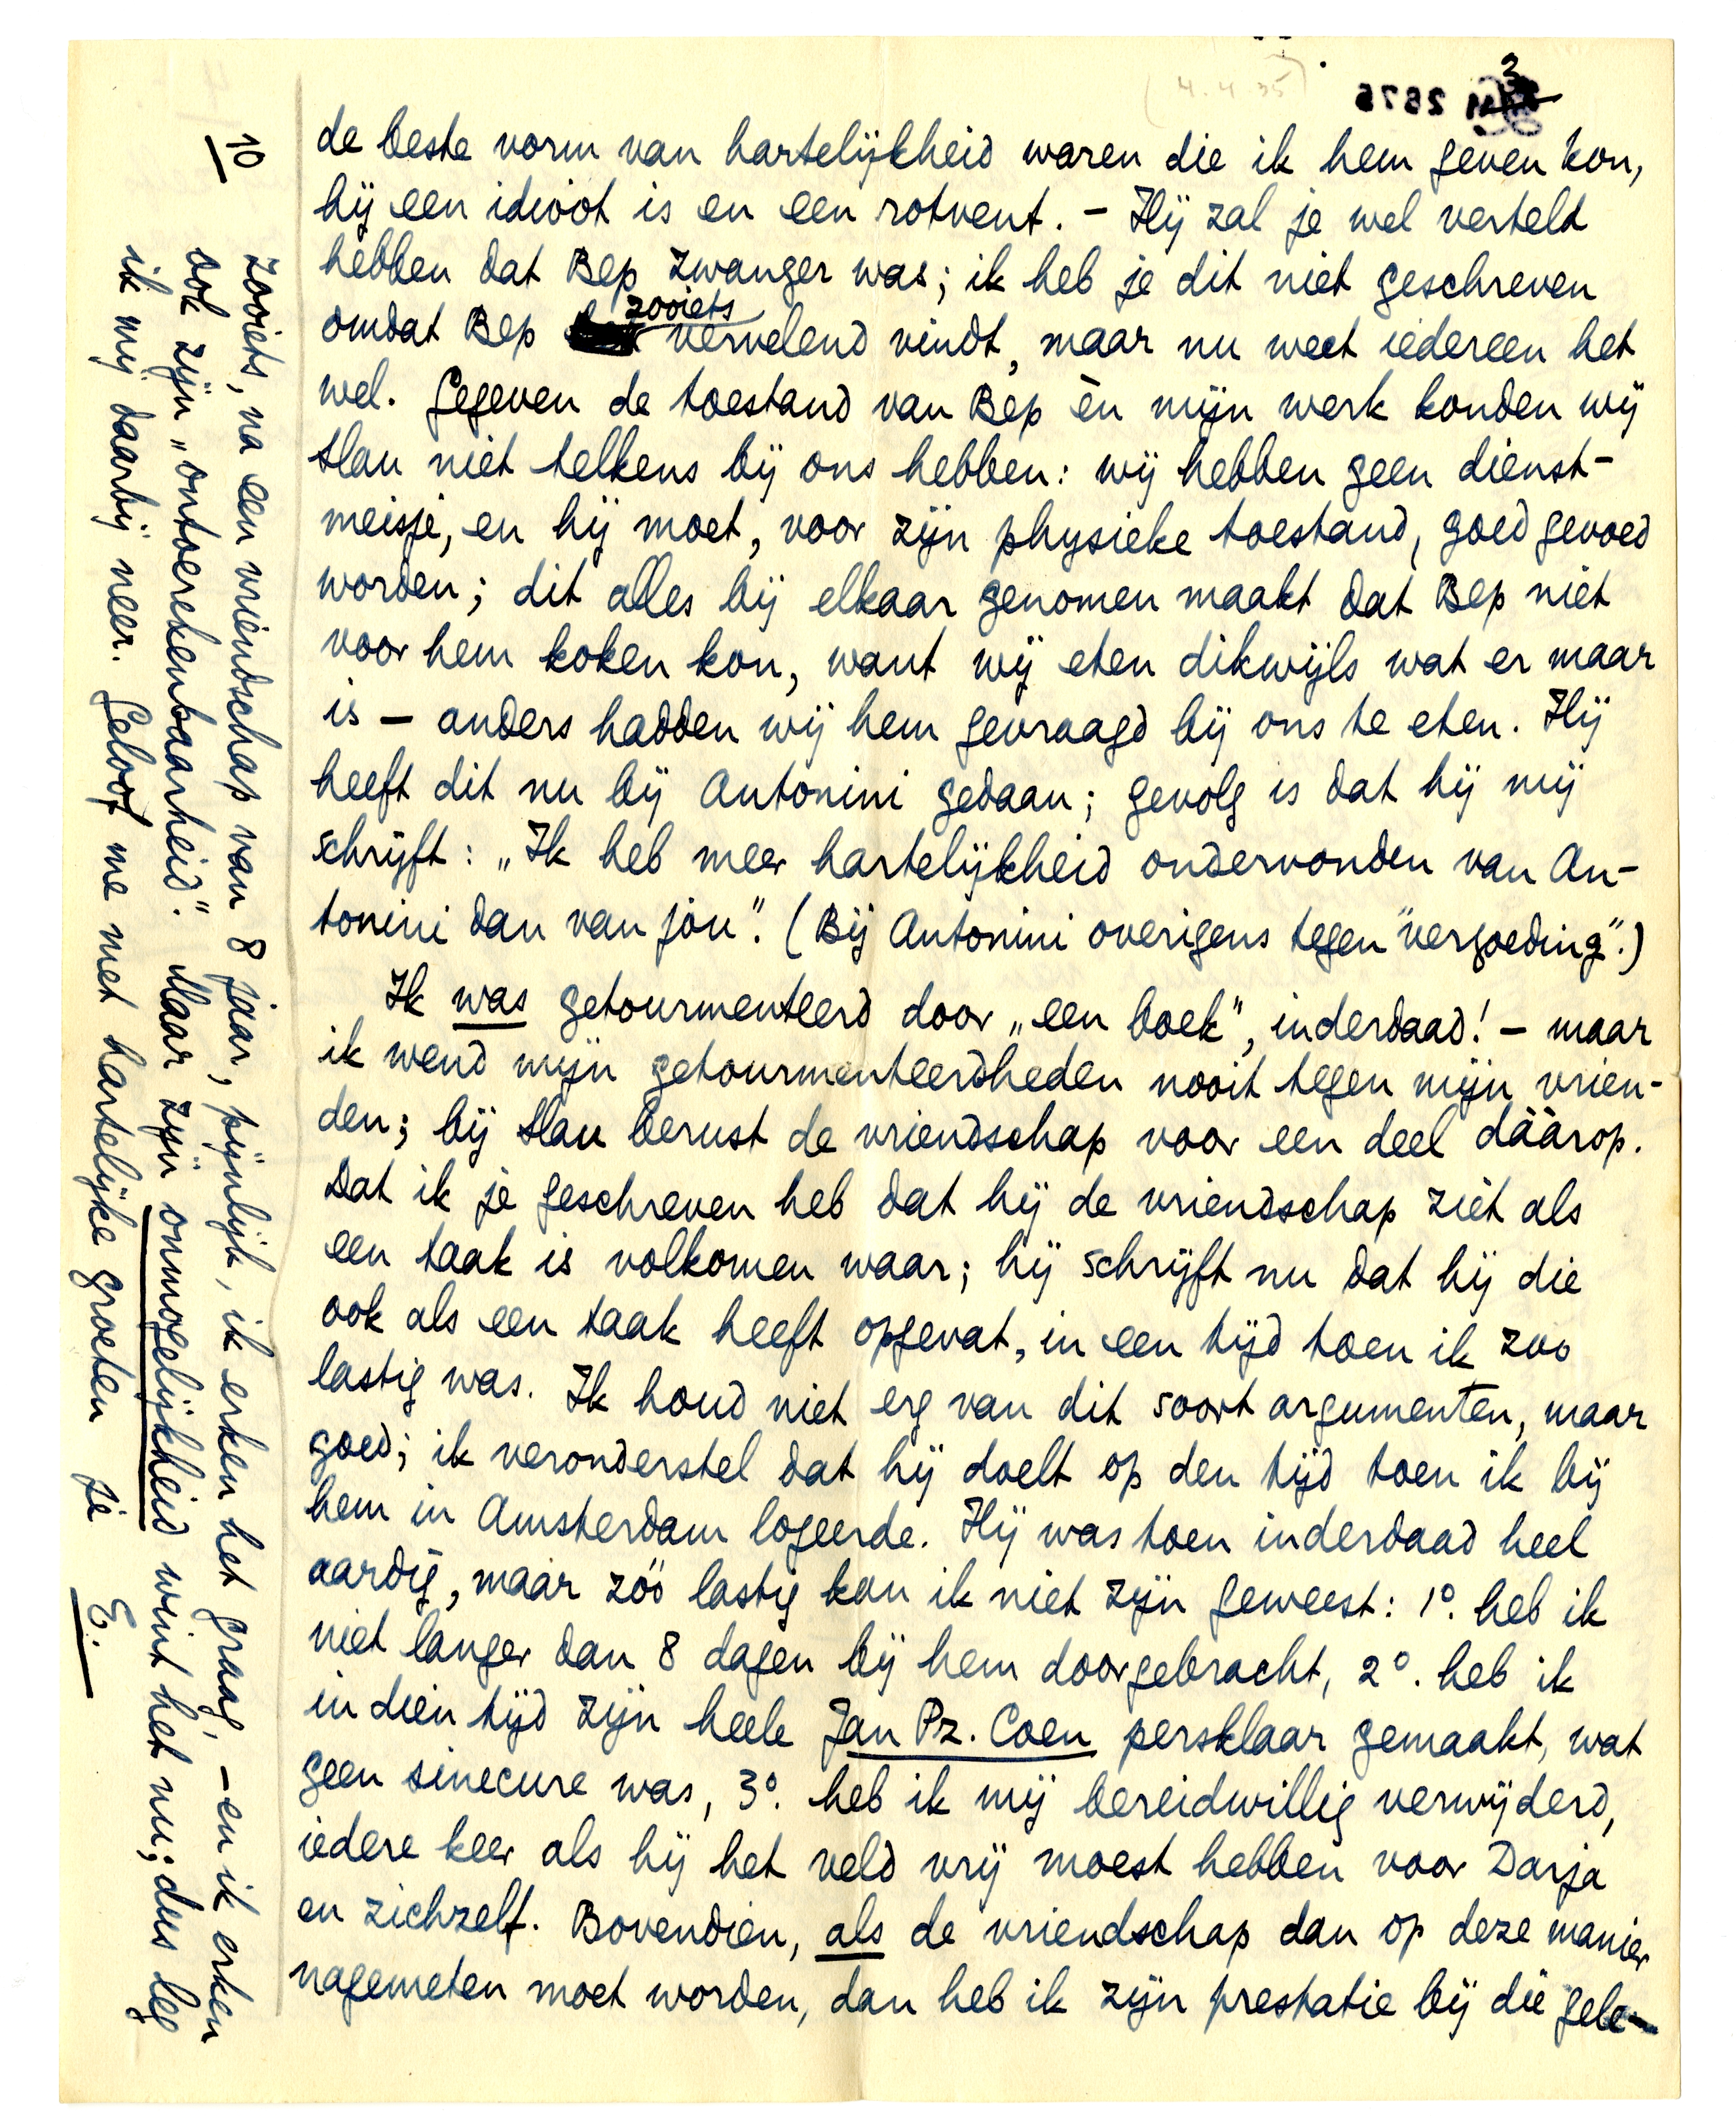 (4.4.35)
M 2876
3
de beste vorm van hartelijkheid waren die ik hem geven kon,
hij een idioot is en een rotvent. – Hij zal je wel verteld
hebben dat Bep zwanger was; ik heb je dit niet geschreven
omdat Bep zooiets vervelend vindt, maar nu weet iedereen het
wel. Gegeven de toestand van Bep èn mijn werk konden wij
Slau niet telkens bij ons hebben: wij hebben geen dienst-
meisje, en hij moet, voor zijn physieke toestand, goed gevoed
worden; dit alles bij elkaar genomen maakt dat Bep niet
voor hem koken kon, want wij eten dikwijls wat er maar
is – anders hadden wij hem gevraagd bij ons te eten. Hij
heeft dit nu bij Antonini gedaan; gevolg is dat hij mij
schrijft: „Ik heb meer hartelijkheid ondervonden van An-
tonini dan van jou". (Bij Antonini overigens tegen "vergoeding".)
Ik was getourmenteerd door „een boek", inderdaad! – maar
ik wend mijn getourmenteerdheden nooit tegen mijn vrien-
den; bij Slau berust de vriendschap voor een deel dáárop.
Dat ik je geschreven heb dat hij de vriendschap ziet als
een taak is volkomen waar; hij schrijft nu dat hij die
ook als een taak heeft opgevat, in een tijd toen ik zoo
lastig was. Ik houd niet erg van dit soort argumenten, maar
goed; ik veronderstel dat hij doelt op den tijd toen ik bij
hem in Amsterdam logeerde. Hij was toen inderdaad heel
aardig, maar zóó lastig kan ik niet zijn geweest: 1°. heb ik
niet langer dan 8 dagen bij hem doorgebracht, 2°. heb ik
in dien tijd zijn heele Jan Pz. Coen persklaar gemaakt, wat
geen sinecure was, 3°. heb ik mij bereidwillig verwijderd,
iedere keer als hij het veld vrij moest hebben voor Darja
en zichzelf. Bovendien, als de vriendschap dan op deze manier
nagemeten moet worden, dan heb ik zijn prestatie bij die gele-
10
zooiets, na een vriendschap van 8 jaar, pijnlijk, ik erken het graag, – en ik erken
ook zijn „ontoerekenbaarheid". Maar zijn onmogelijkheid wint het nu; dus leg
ik mij daarbij neer. Geloof me met hartelijke groeten je E.